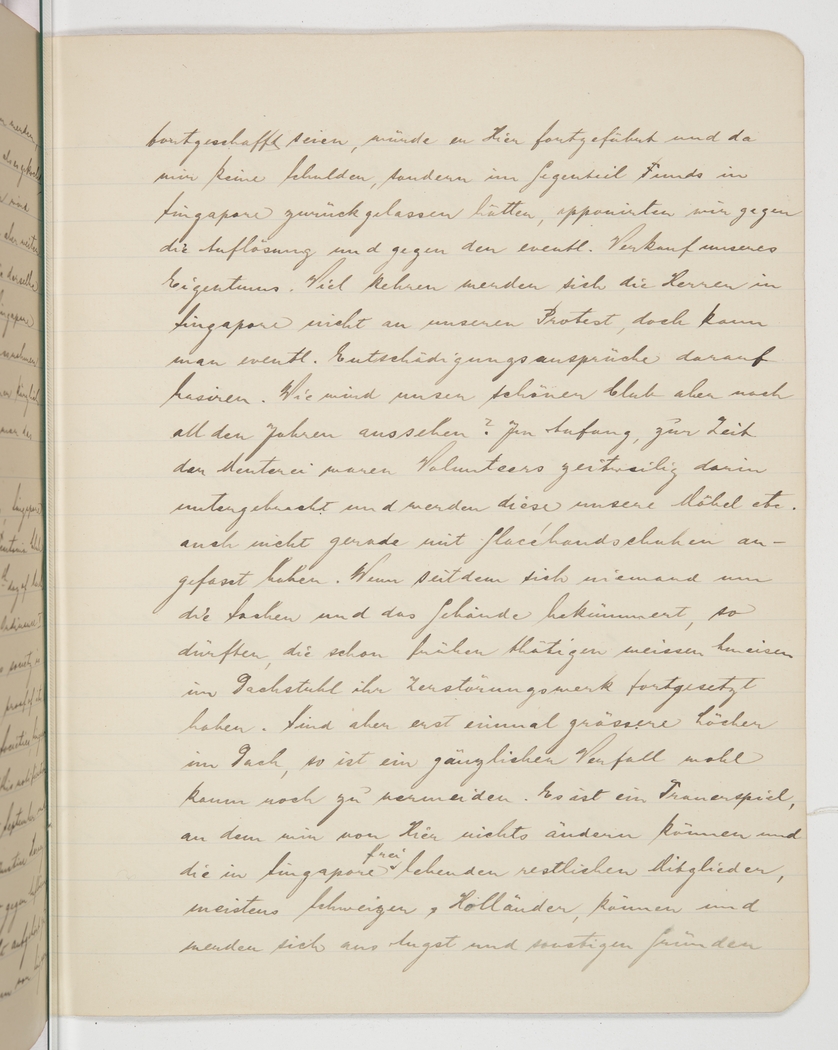 fortgeschafft seien, würde er Hier fortgeführt und da
wir keine Schulden, sondern im Gegenteil Funds in
Singapore zurückgelassen hätten, opponirten wir gegen
die Auflösung und gegen den eventl. Verkauf unseres
Eigentums. Viel kehren werden sich die Herren in
Singapore nicht an unseren Protest, doch kann
man eventl. Entschädigungsansprüche darauf
basiren. Wie wird unser schöner Club aber nach
all den Jahren aussehen? Im Anfang, zur Zeit
der Meuterei waren Volunteers zeitweilig darin
untergebracht und werden diese unsere Möbel etc.
auch nicht gerade mit Glacéhandschuhen an-
gefasst haben. Wenn seitdem sich niemand um
die Sachen und das Gebäude bekümmert, so
dürften, die schon früher thätigen weissen Ameisen
im Dachstuhl ihr Zerstörungswerk fortgesetzt
haben. Sind aber erst einmal grössere Löcher
im Dach, so ist ein gänzlicher Verfall wohl
kaum noch zu vermeiden. Es ist ein Trauerspiel,
an dem wir von Hier nichts ändern können und
die in Singapore frei lebenden restlichen Mitglieder,
meistens Schweizer & Holländer, können und
werden sich aus Angst und sonstigen Gründen